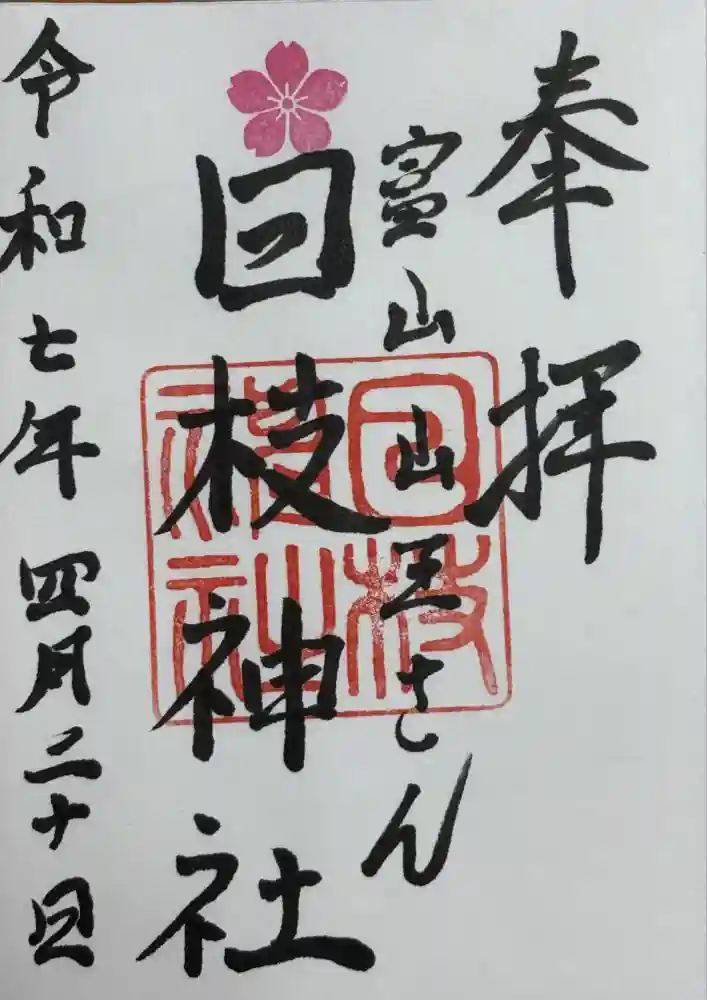 奉拝
富山山王さん
日枝神社
令和七年四月二十日